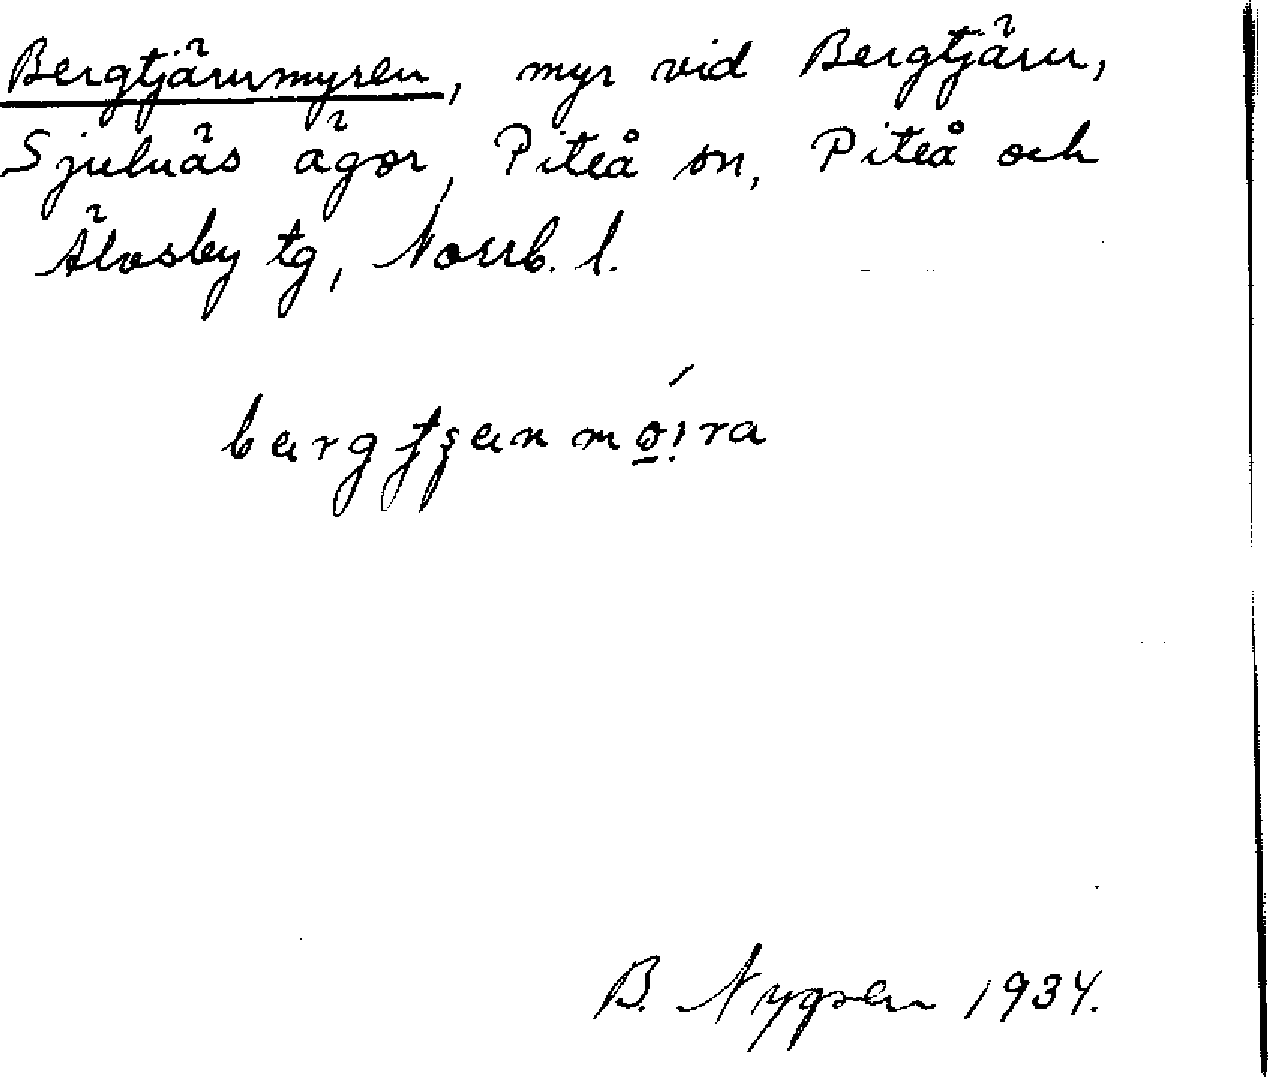 Bergtjärnmyren, myr vid Bergtjärn,
Sjulnäs ägor, Piteå sn, Piteå och
Älvsby tg, Norrb. l.
B. Nygren 1934.